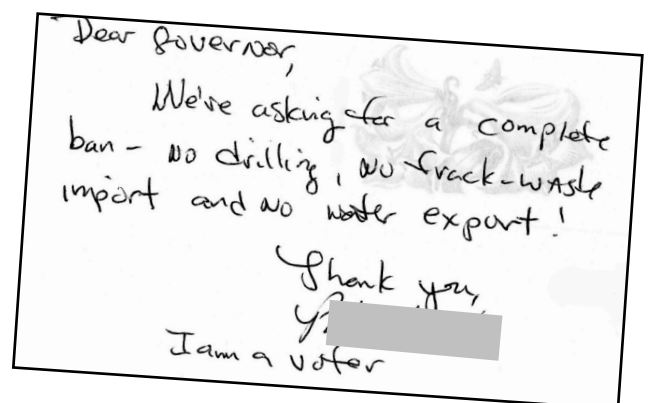 Dear Governor,
We're asking for a complete
ban - no drilling, no frack-waste
import and no water export!
Thank you,
I am a voter